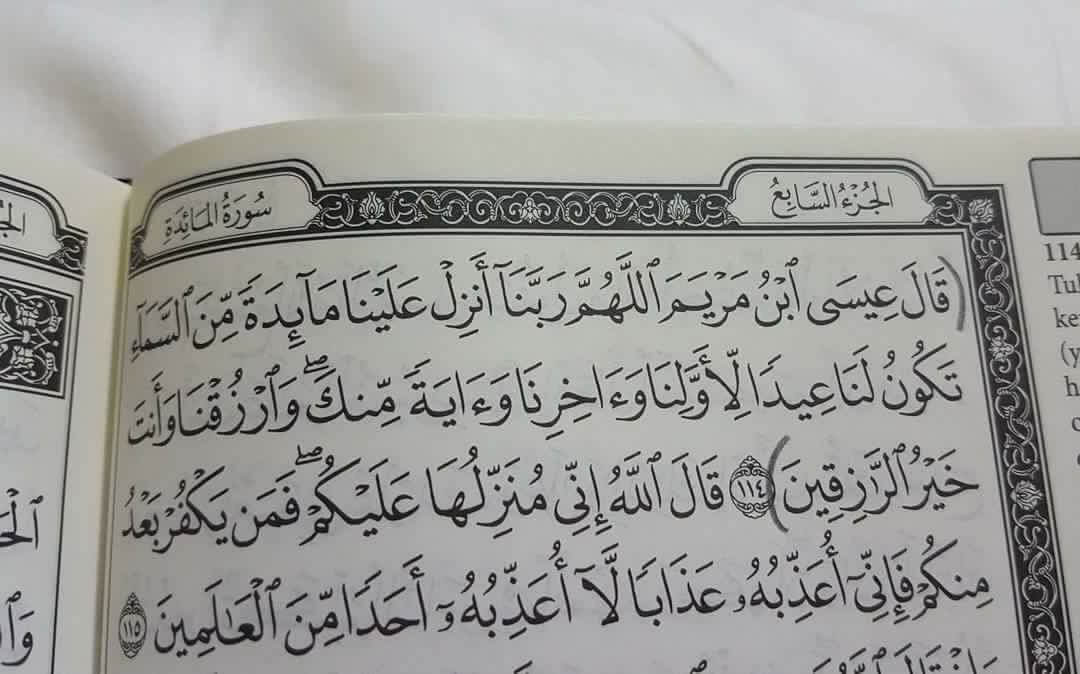 الجزء السابع
سورة المائدة
قَالَ عِيسَى ٱبْنُ مَرْيَمَ ٱللَّهُمَّ رَبَّنَآ أَنزِلْ عَلَيْنَا مَآئِدَةً مِّنَ ٱلسَّمَآءِ
تَكُونُ لَنَا عِيدًا لِّأَوَّلِنَا وَءَاخِرِنَا وَءَايَةً مِّنكَ ۖ وَٱرْزُقْنَا وَأَنتَ
خَيْرُ ٱلرَّٰزِقِينَ ١١٤ قَالَ ٱللَّهُ إِنِّى مُنَزِّلُهَا عَلَيْكُمْ ۖ فَمَن يَكْفُرْ بَعْدُ
مِنكُمْ فَإِنِّىٓ أُعَذِّبُهُۥ عَذَابًا لَّآ أُعَذِّبُهُۥٓ أَحَدًا مِّنَ ٱلْعَٰلَمِينَ ١١٥
114